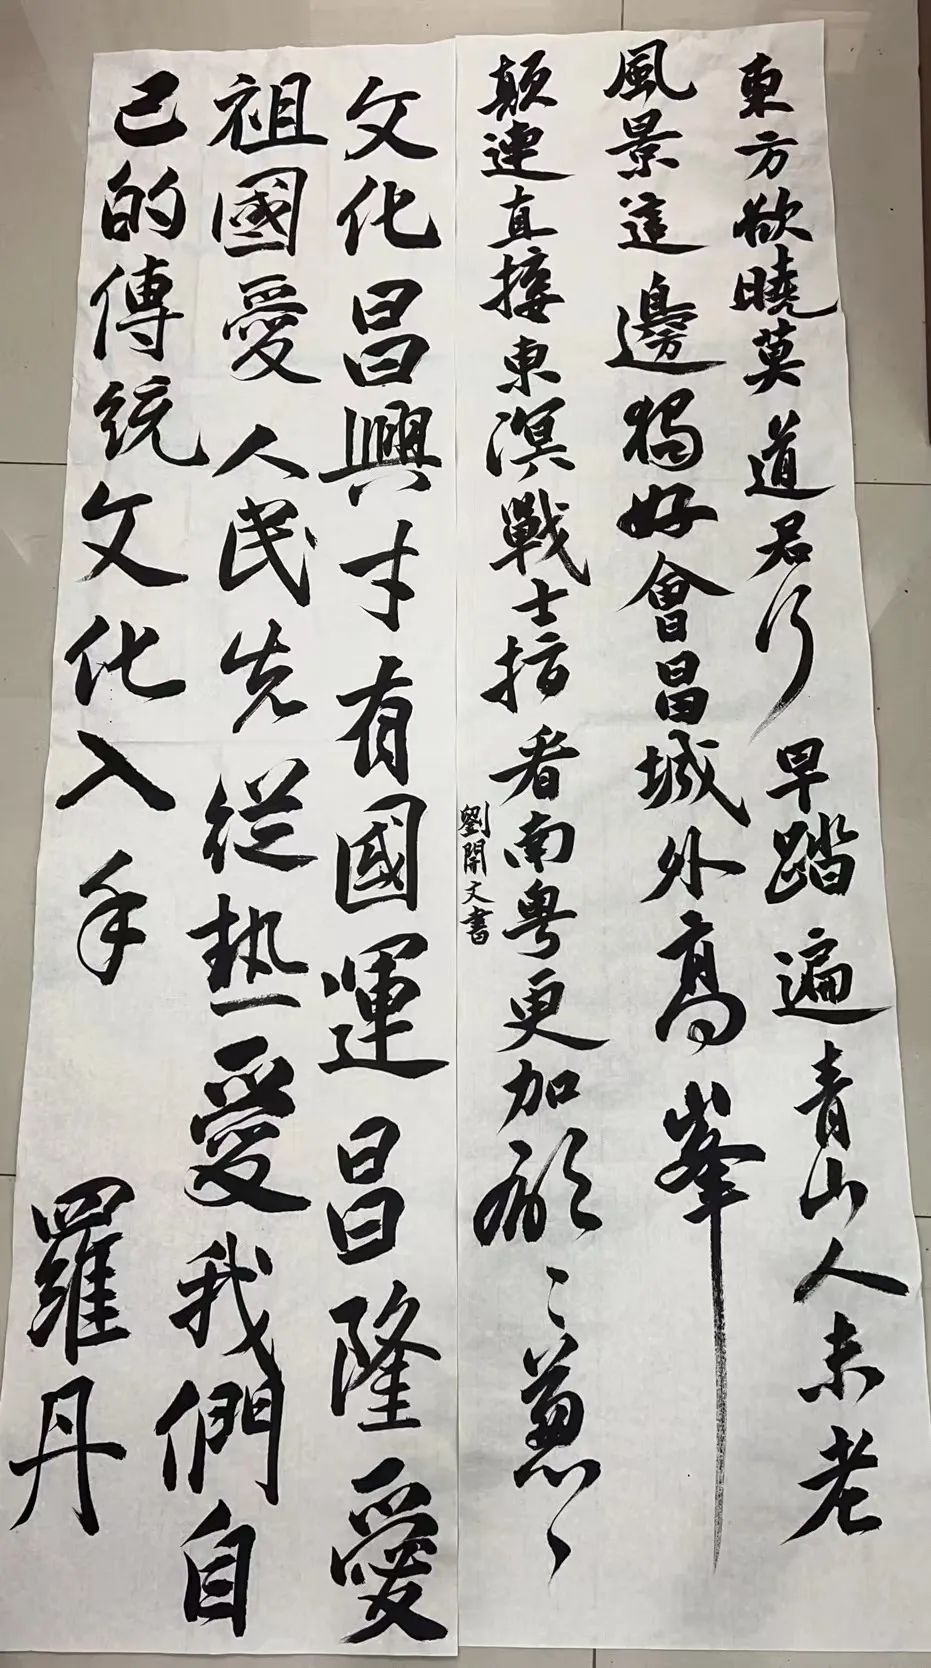 東方欲曉莫道君行早踏遍青山人未老
風景這邊獨好會昌城外高峯
顛連直接東溟戰士指看南粵更加郁〻葱〻
劉開文書
文化昌興才有國運昌隆愛
祖國愛人民先從热愛我們自
己的傳統文化入手
羅丹